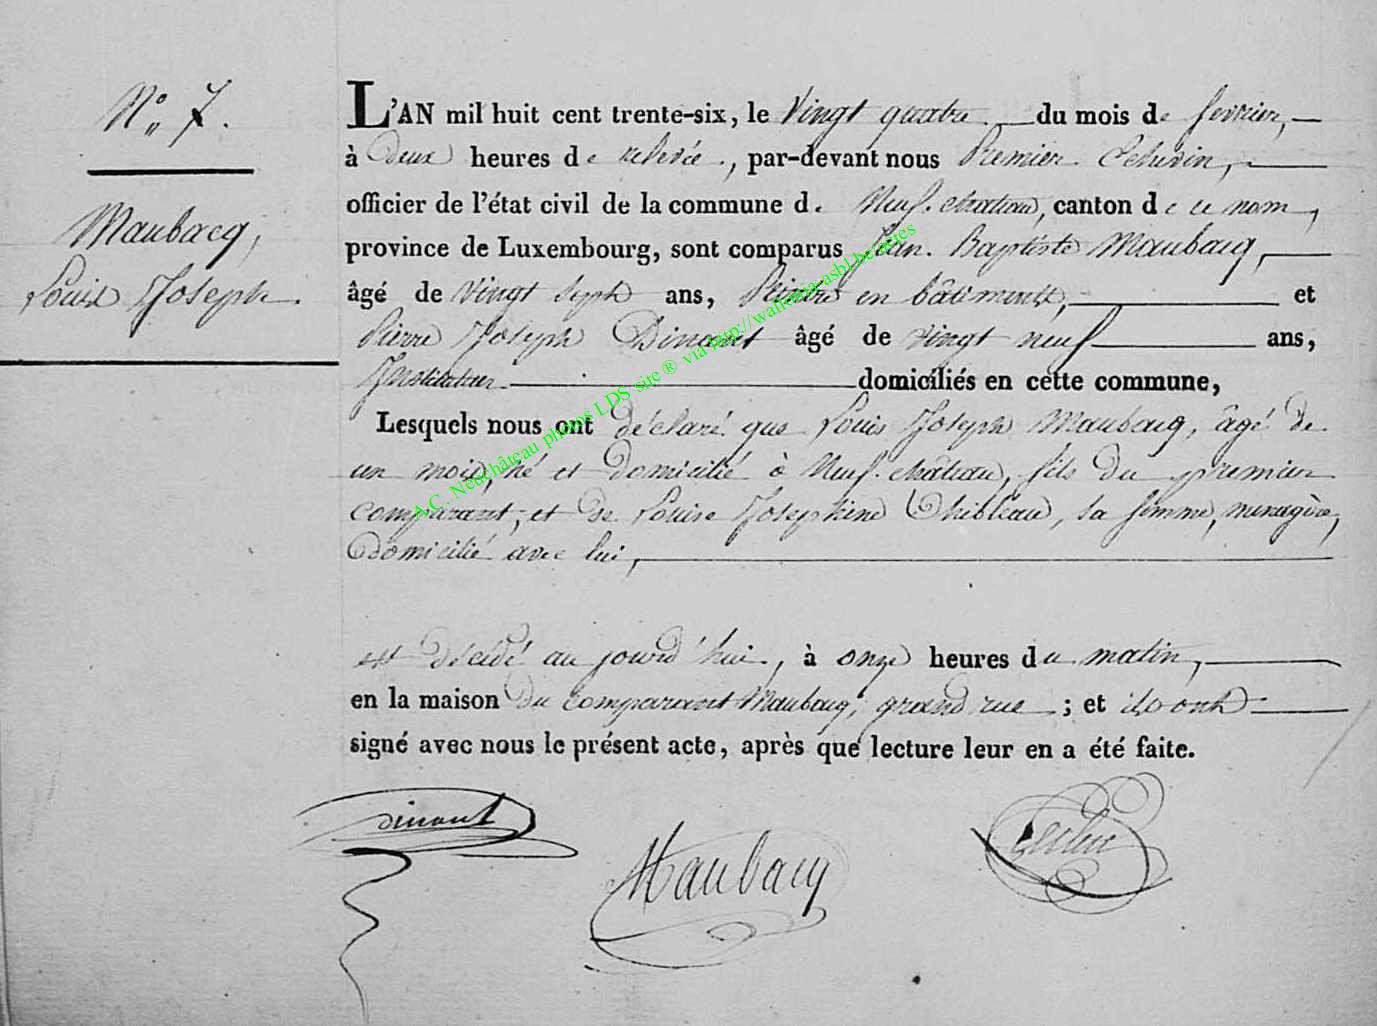 N° 7.
Maubacq,
Louis Joseph.
L'AN mil huit cent trente-six, le Vingt quatre du mois de fevrier,
à deux heures de relevée, par-devant nous Premier Echevin,
officier de l'état civil de la commune de Neuf-chateau, canton de ce nom,
province de Luxembourg, sont comparus Jean-Baptiste Maubacq,
âgé de Vingt Sept ans, Peintre en bâtiments, et
Pierre Joseph Dinant âgé de vingt neuf ans,
Instituteur domiciliés en cette commune,
Lesquels nous ont déclaré que Louis Joseph Maubacq, âgé de
un mois, né et domicilié à Neuf-château, fils du premier
comparant, et de Louise Josephine Thibleau, sa femme, menagère,
domicilié avec lui,
est décédé au jourd'hui, à onze heures du matin,
en la maison du comparant Maubacq, grand rue ; et ils ont
signé avec nous le présent acte, après que lecture leur en a été faite.
Dinant
Maubacq
A.C. Neufchâteau photos LDS site ® via http://wallonia-asbl.be/actes